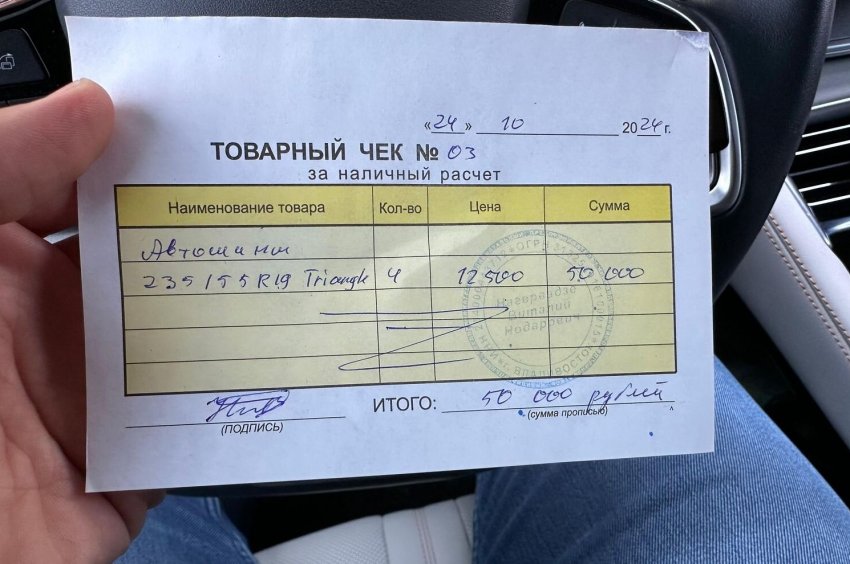 «24» 10 2024 г.
ТОВАРНЫЙ ЧЕК № 03
за наличный расчет
Наименование товара Кол-во Цена Сумма
Автошины
235/55R19 Triangle 4 12 500 50 000
Виталий
Нодарович
ИТОГО: 50 000 рублей
(ПОДПИСЬ) (сумма прописью)